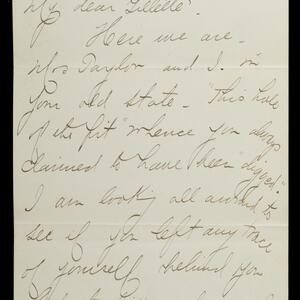 My dear Gillette.
Here we are -
Mrs Taylor and I - in
your old state - "This hole
of the pit" whence you always
claimed to have been "digged".
I am looking all around to
see if you left any trace
of yourself behind you